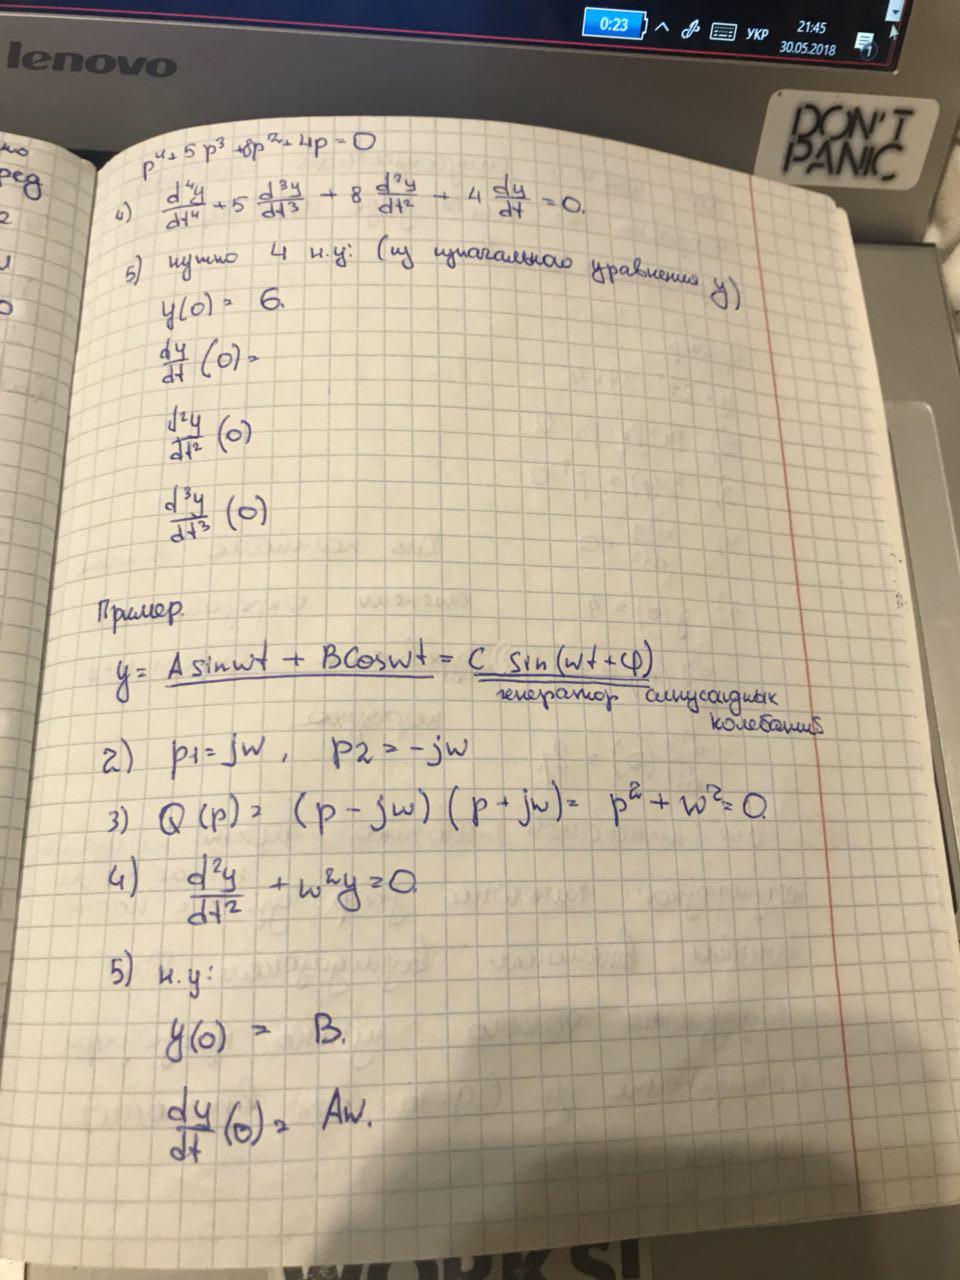 0:23 УКР 21:45
30.05.2018
1
lenovo
DON'T
PANIC
ред
p⁴ + 5p³ + 8p² + 4p = 0
4) d⁴y/dt⁴ + 5 d³y/dt³ + 8 d²y/dt² + 4 dy/dt = 0.
5) нужно 4 н.у: (из изначального уравнения y)
y(0) = 6.
dy/dt (0) =
d²y/dt² (0)
d³y/dt³ (0)
Пример.
y = A sin wt + B Cos wt = C sin(wt + φ)
генератор синусоидных
колебаний
2) p1 = jw, p2 = -jw
3) Q(p) = (p - jw)(p + jw) = p² + w² = 0.
4) d²y/dt² + w²y = 0.
5) н.у:
y(0) = B.
dy/dt (0) = Aw.
WORKS!